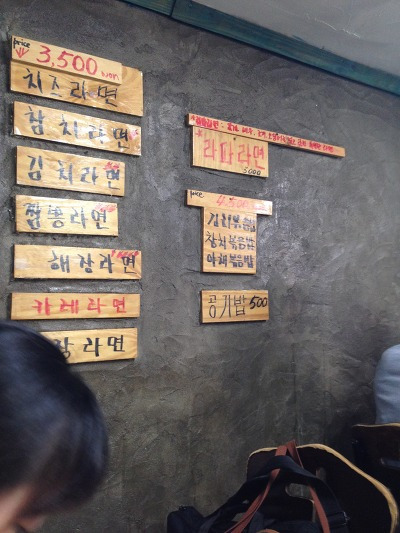 price
3,500 won
치즈라면
참치라면
김치라면
짬뽕라면
해장라면
카레라면
라면
라파라면
5000
price
김치볶음밥
참치볶음밥
야채볶음밥
공기밥 500